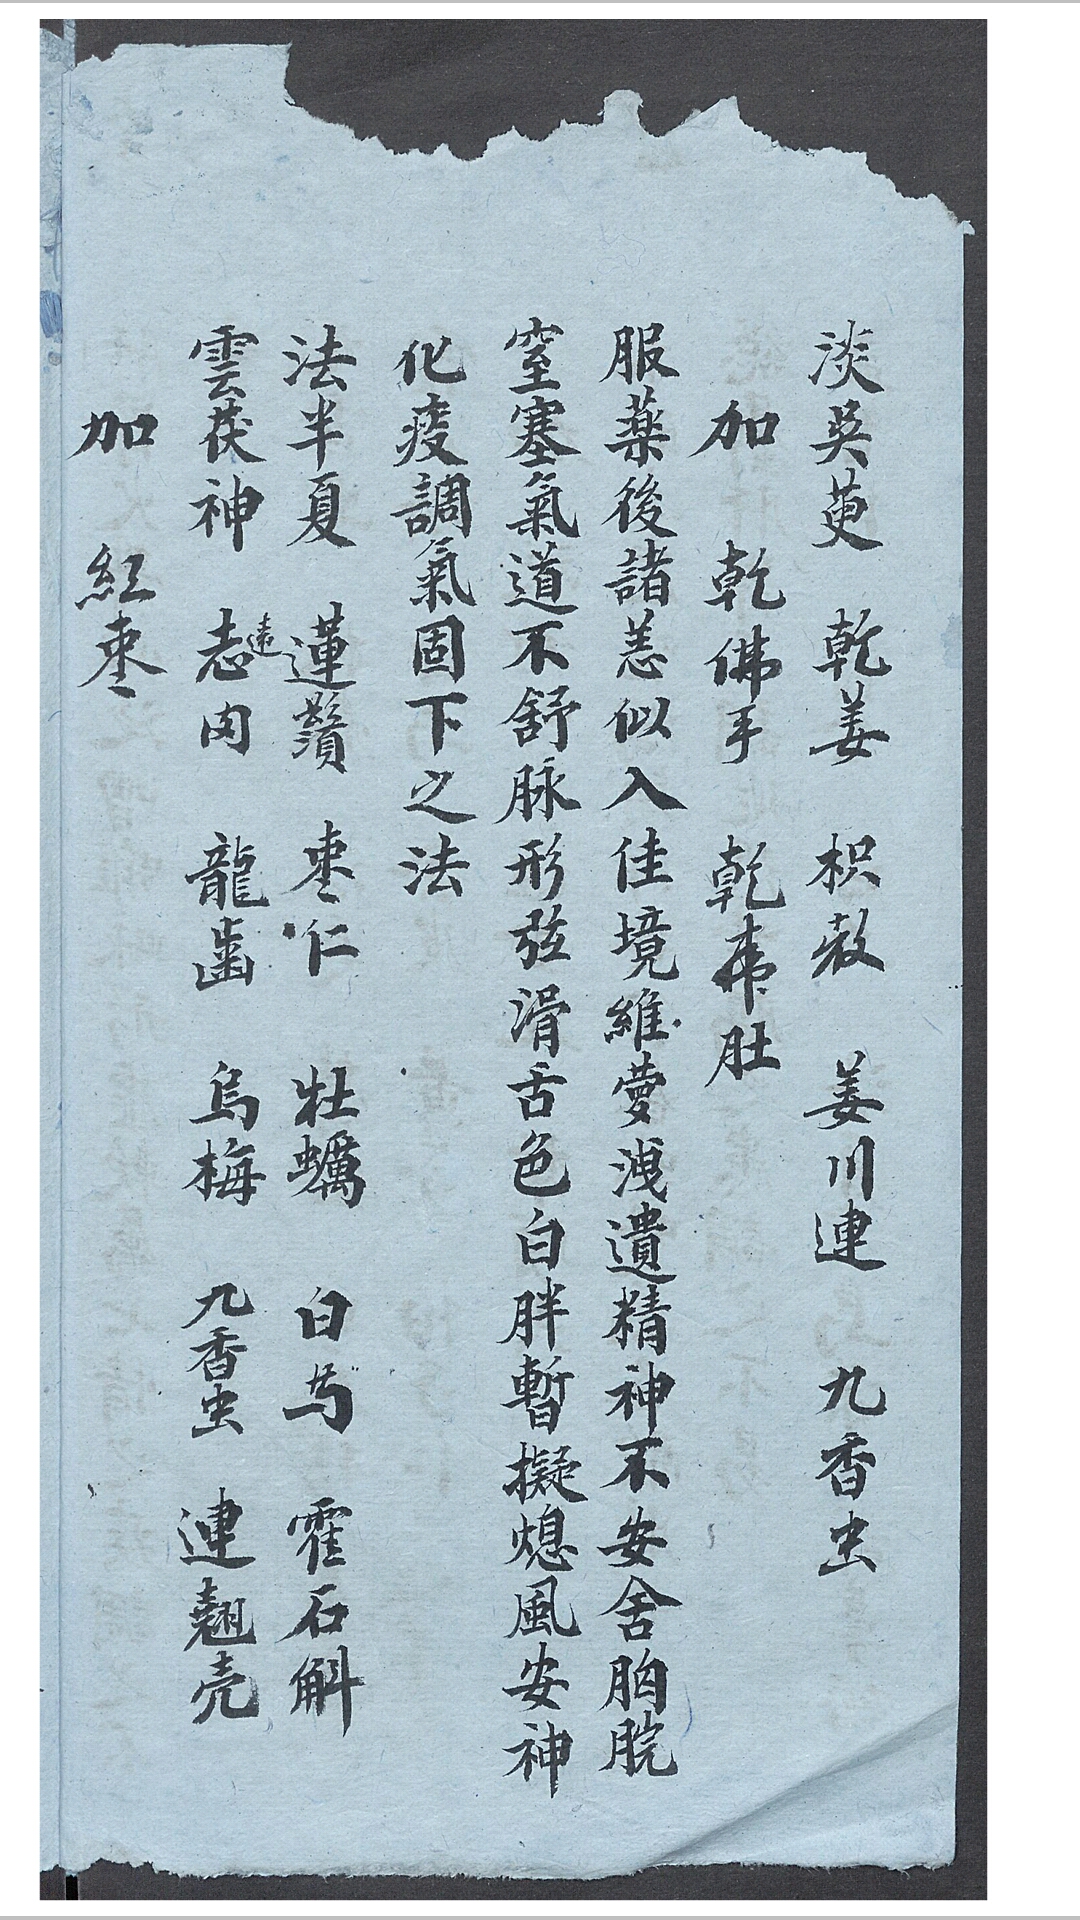 淡吳萸 乾姜 枳殼 姜川連 九香虫
加 乾佛手 乾韋肚
服藥後諸恙似入佳境維夢洩遺精神不安舍胸脘
窒塞氣道不舒脉形弦滑舌色白胖暫擬熄風安神
化痰調氣固下之法
法半夏 蓮鬚 棗仁 牡蠣 白芍 霍石斛
雲茯神 遠志肉 龍齒 烏梅 九香虫 連翹壳
加 紅棗